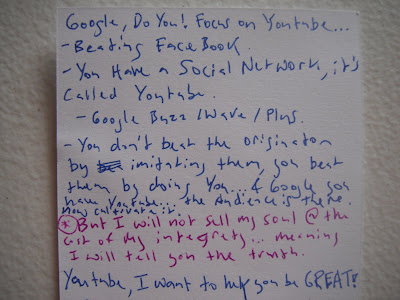 Google, Do You! Focus on Youtube...
- Beating FaceBook.
- You Have a Social Network, it's
called Youtube.
- Google Buzz / Wave / Plus.
- You don't beat the originator
by imitating them, you beat
them by doing You... & Google you
have Youtube... the Audience is there.
Now cultivate it.
* But I will not sell my soul @ the
cost of my integrety... meaning
I will tell you the truth.
Youtube, I want to help you be GREAT!